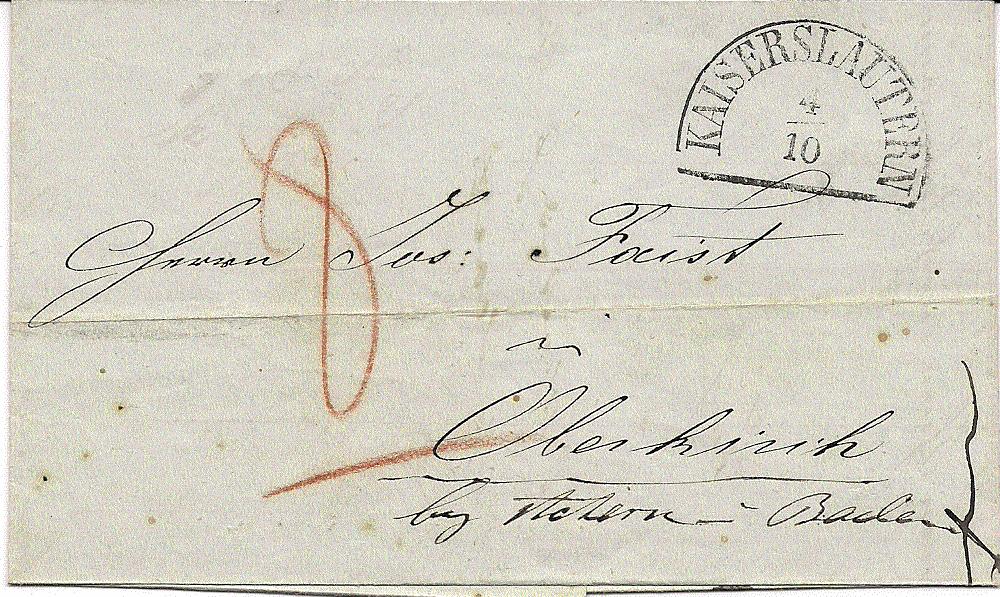 KAISERSLAUTERN
4
10
8
Herrn Jos: Faist
in
Oberkirch
by Achern - Baden